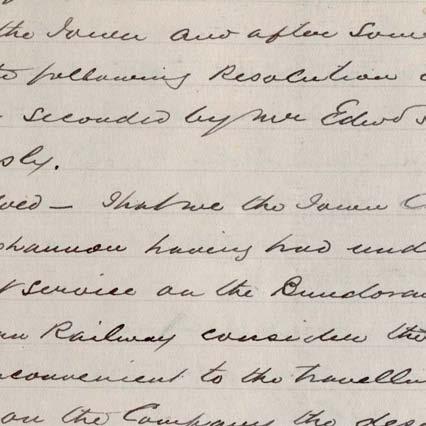 the Town and after some
following Resolution
seconded by Mr Edwd
sly.
ved – That we the Town C
shannon having had und
service on the Bundoran
Railway consider the
nconvenient to the travelli
on the Company the des